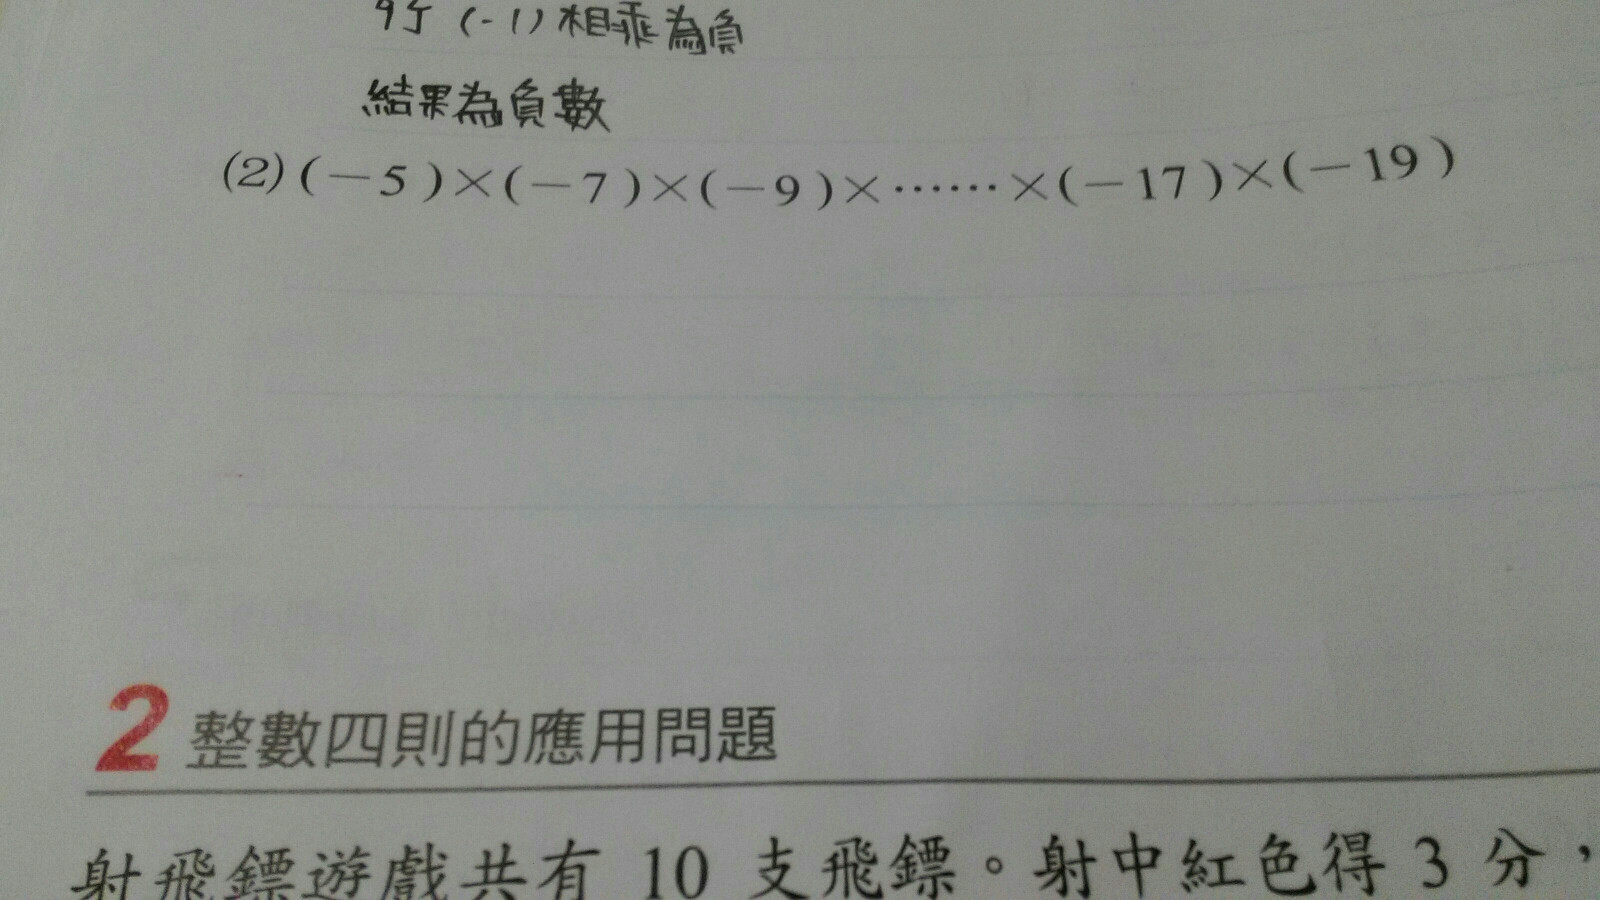 (-1)相乘為負
結果為負數
(2)(-5)×(-7)×(-9)×……×(-17)×(-19)
2 整數四則的應用問題
射飛鏢遊戲共有 10 支飛鏢。射中紅色得 3 分，